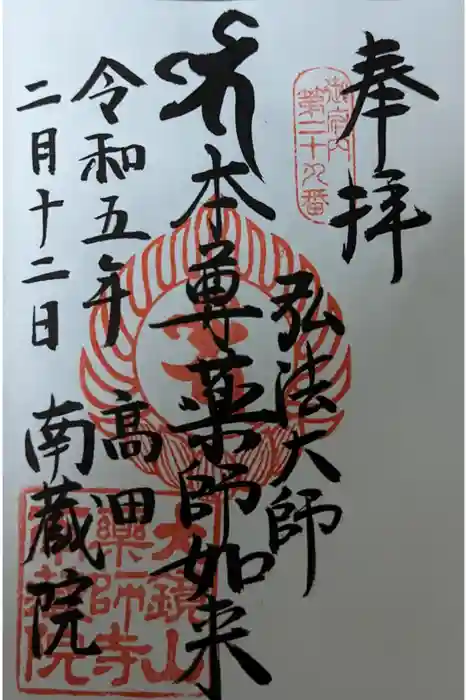 奉拝
第二十九番
弘法大師
本尊薬師如来
令和五年
二月十二日
高田
南蔵院
大鏡山
薬師寺
南蔵院